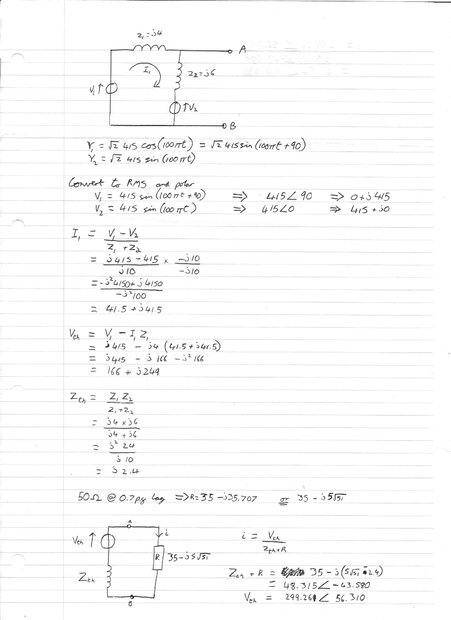 Z₁ = j4
A
I₁
Z₂ = j6
V₁
V₂
B
V₁ = √2 415 cos(100πt) = √2 415 sin(100πt + 90)
V₂ = √2 415 sin(100πt)
Convert to RMS and polar
V₁ = 415 sin(100πt + 90) ⇒ 415∠90 ⇒ 0 + j415
V₂ = 415 sin(100πt) ⇒ 415∠0 ⇒ 415 + j0
I₁ = (V₁ - V₂) / (Z₁ + Z₂)
= (j415 - 415) / j10 × (-j10) / (-j10)
= (-j²4150 + j4150) / (-j²100)
= 41.5 + j41.5
Vth = V₁ - I₁Z₁
= j415 - j4(41.5 + j41.5)
= j415 - j166 - j²166
= 166 + j249
Zth = Z₁Z₂ / (Z₁ + Z₂)
= (j4 × j6) / (j4 + j6)
= j²24 / j10
= j2.4
50Ω @ 0.7pf lag ⇒ R = 35 - j35.707 or 35 - j5√51
A
Vth
i
R
35 - j5√51
Zth
B
i = Vth / (Zth + R)
Zth + R = 35 - j(5√51 - 2.4)
= 48.315∠-43.580
Vth = 299.261∠56.310